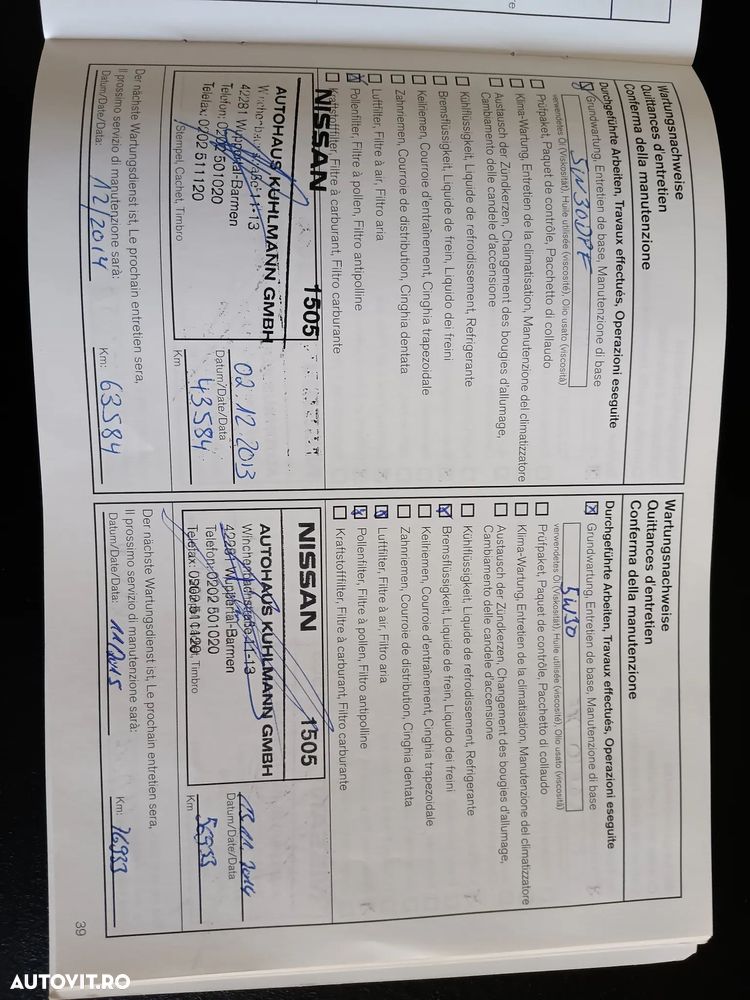 Wartungsnachweise
Quittances d'entretien
Conferma della manutenzione
Durchgeführte Arbeiten, Travaux effectués, Operazioni eseguite
Grundwartung, Entretien de base, Manutenzione di base
5W30DPF
verwendetes Öl (Viskosität), Huile utilisée (viscosité), Olio usato (viscosità)
Prüfpaket, Paquet de contrôle, Pacchetto di collaudo
Klima-Wartung, Entretien de la climatisation, Manutenzione del climatizzatore
Austausch der Zündkerzen, Changement des bougies d'allumage,
Cambiamento delle candele d'accensione
Kühlflüssigkeit, Liquide de refroidissement, Refrigerante
Bremsflüssigkeit, Liquide de frein, Liquido dei freini
Keilriemen, Courroie d'entraînement, Cinghia trapezoidale
Zahnriemen, Courroie de distribution, Cinghia dentata
Luftfilter, Filtre à air, Filtro aria
Pollenfilter, Filtre à pollen, Filtro antipolline
Kraftstofffilter, Filtre à carburant, Filtro carburante
NISSAN 1505
AUTOHAUS KUHLMANN GMBH
11-13
42281 Wuppertal-Barmen
Telefon: 0202 501020
Telefax: 0202 511120
Stempel, Cachet, Timbro
02.12.2013
Datum/Date/Data
43584
Km
Der nächste Wartungsdienst ist, Le prochain entretien sera,
Il prossimo servizio di manutenzione sarà:
Datum/Date/Data: 12/2014 Km: 63584
Wartungsnachweise
Quittances d'entretien
Conferma della manutenzione
Durchgeführte Arbeiten, Travaux effectués, Operazioni eseguite
Grundwartung, Entretien de base, Manutenzione di base
5W30
verwendetes Öl (Viskosität), Huile utilisée (viscosité), Olio usato (viscosità)
Prüfpaket, Paquet de contrôle, Pacchetto di collaudo
Klima-Wartung, Entretien de la climatisation, Manutenzione del climatizzatore
Austausch der Zündkerzen, Changement des bougies d'allumage,
Cambiamento delle candele d'accensione
Kühlflüssigkeit, Liquide de refroidissement, Refrigerante
Bremsflüssigkeit, Liquide de frein, Liquido dei freini
Keilriemen, Courroie d'entraînement, Cinghia trapezoidale
Zahnriemen, Courroie de distribution, Cinghia dentata
Luftfilter, Filtre à air, Filtro aria
Pollenfilter, Filtre à pollen, Filtro antipolline
Kraftstofffilter, Filtre à carburant, Filtro carburante
NISSAN 1505
AUTOHAUS KUHLMANN GMBH
Winchenbachstraße 11-13
42281 Wuppertal-Barmen
Telefon: 0202 501020
Telefax: 0202 511120
Timbro
11 2014
Datum/Date/Data
56933
Km
Der nächste Wartungsdienst ist, Le prochain entretien sera,
Il prossimo servizio di manutenzione sarà:
Datum/Date/Data: 11/2015 Km: 76933
39
AUTOVIT.RO